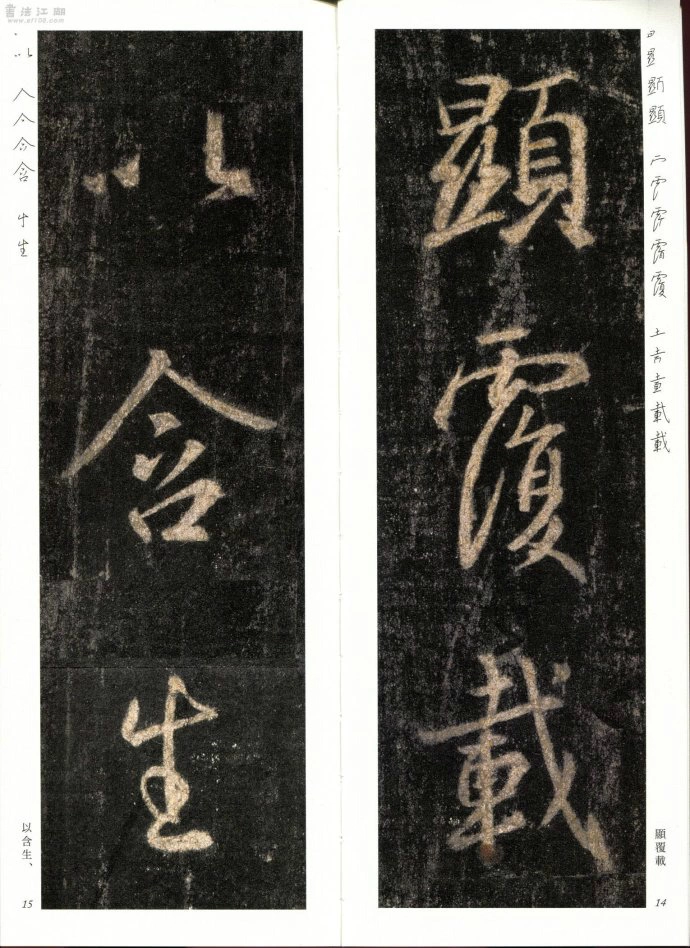 書法江湖
www.sf108.com
顯覆載
顯覆載
14
以含生
以含生、
15